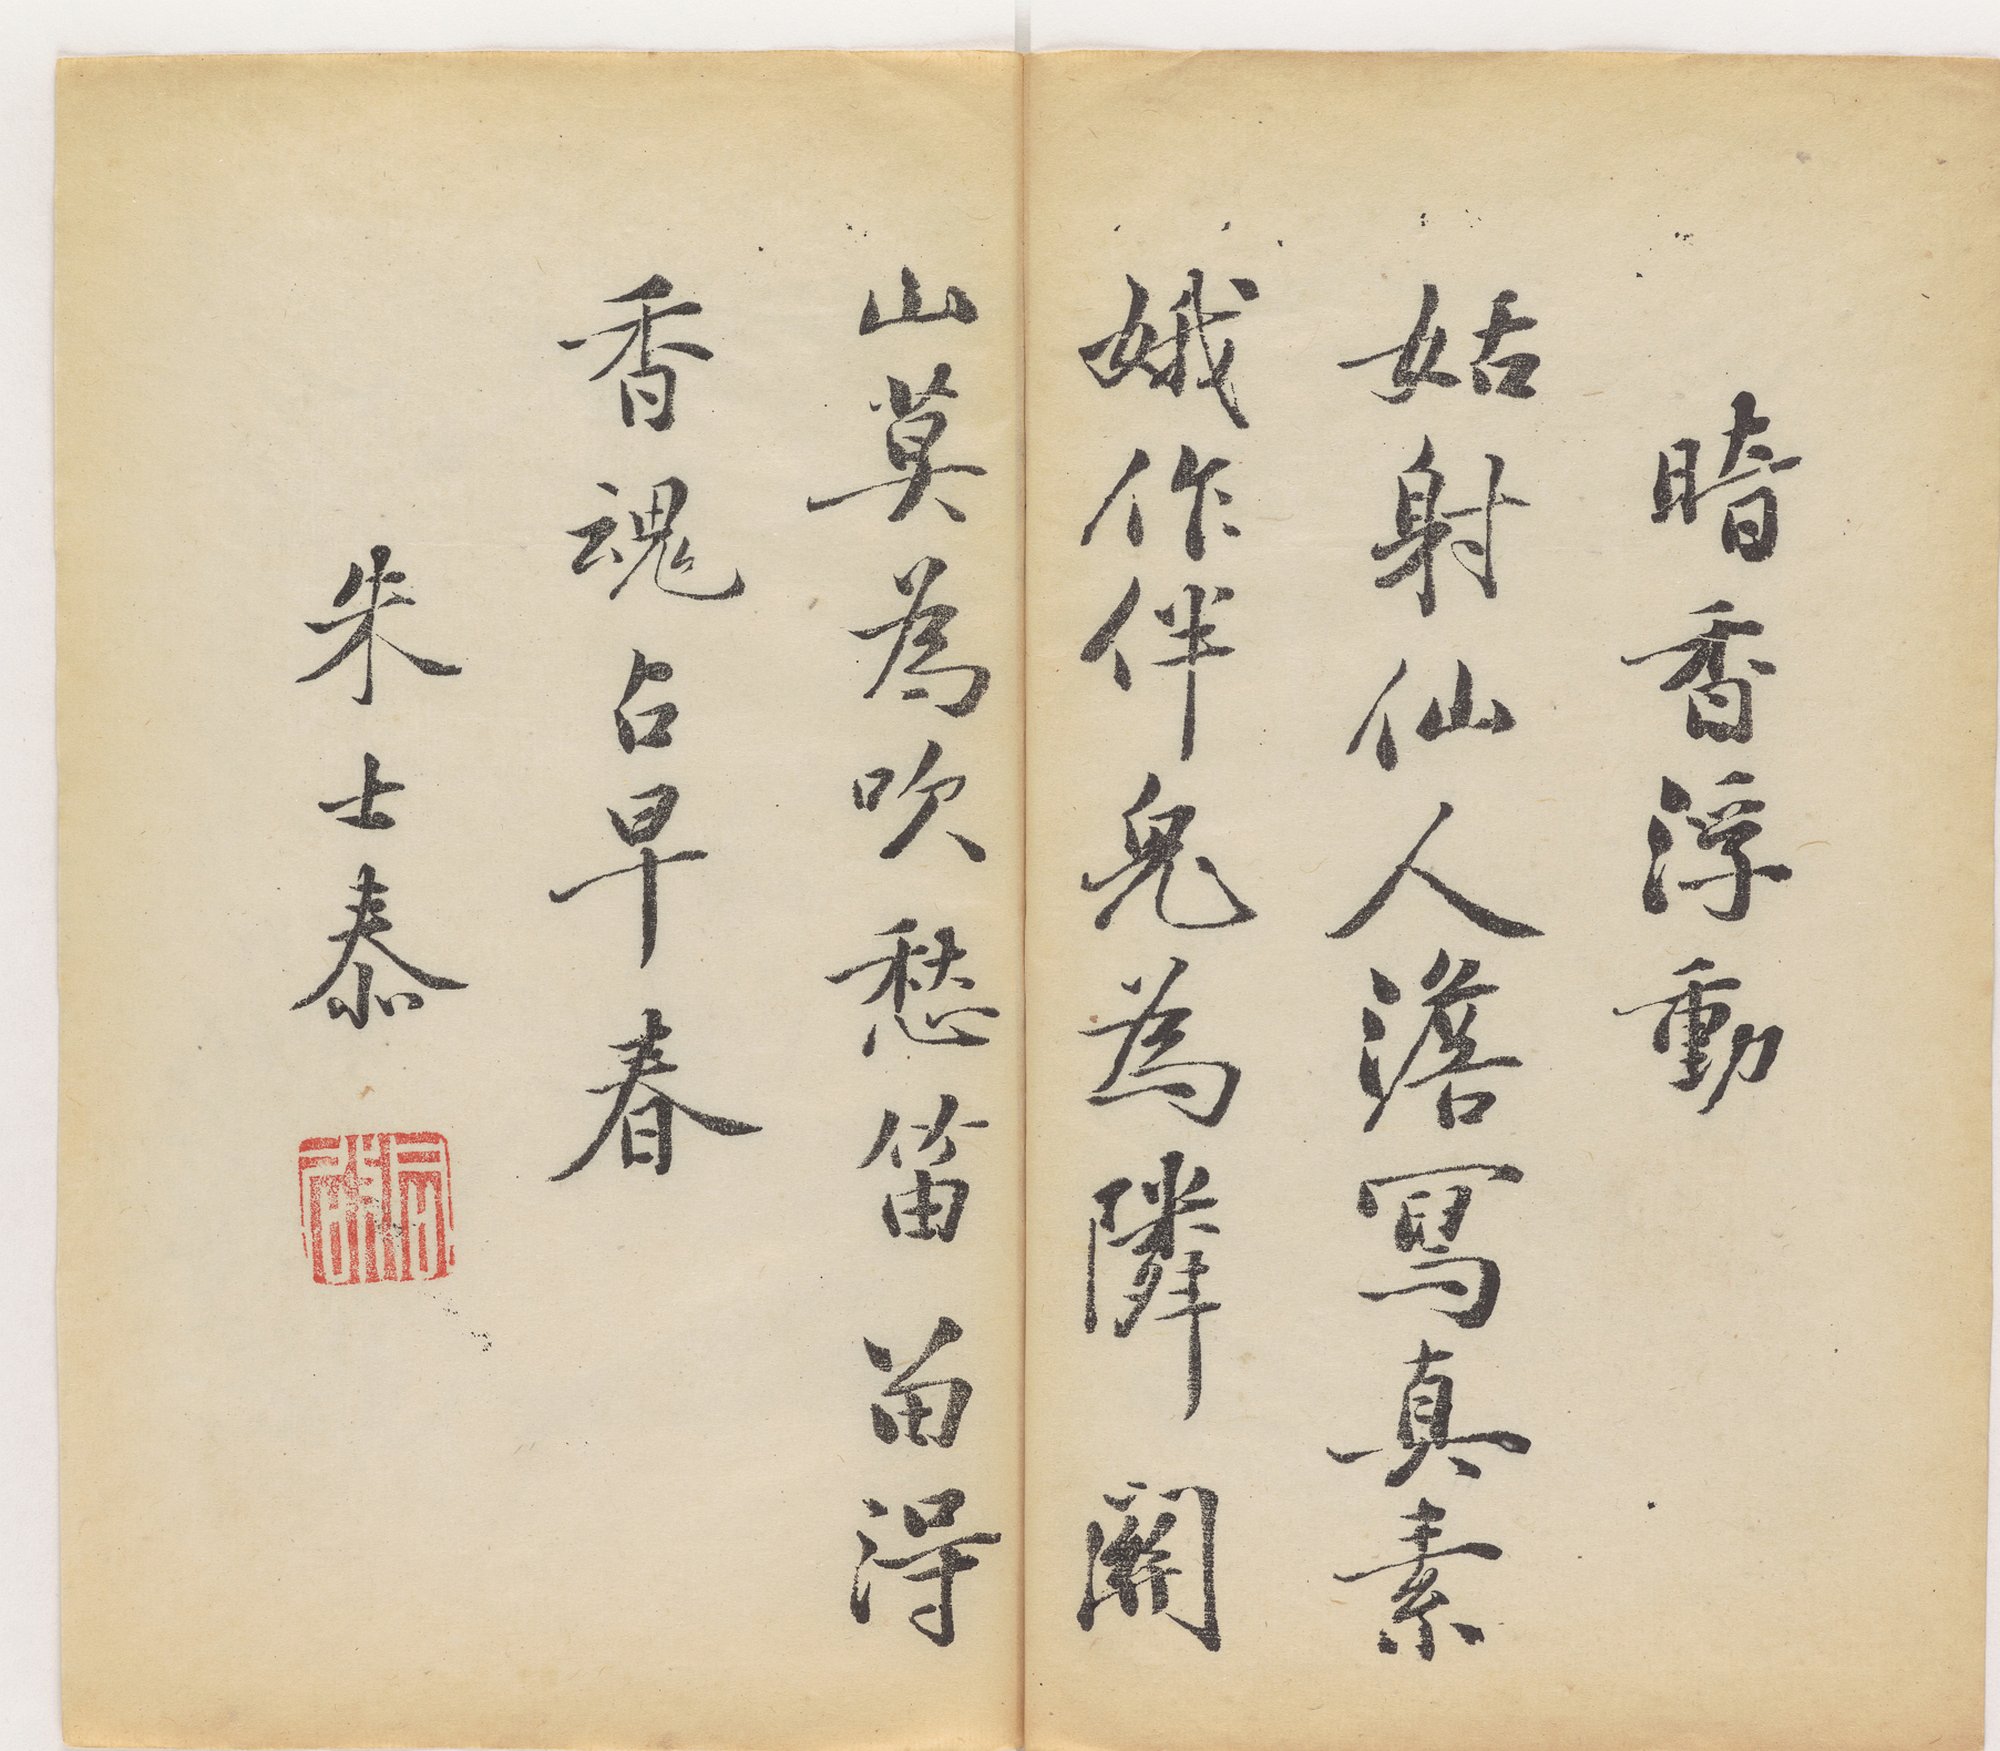 暗香浮動
姑射仙人澹寫真素
娥作伴兒為隣關
山莫為吹愁笛留得
香魂占早春
朱士泰